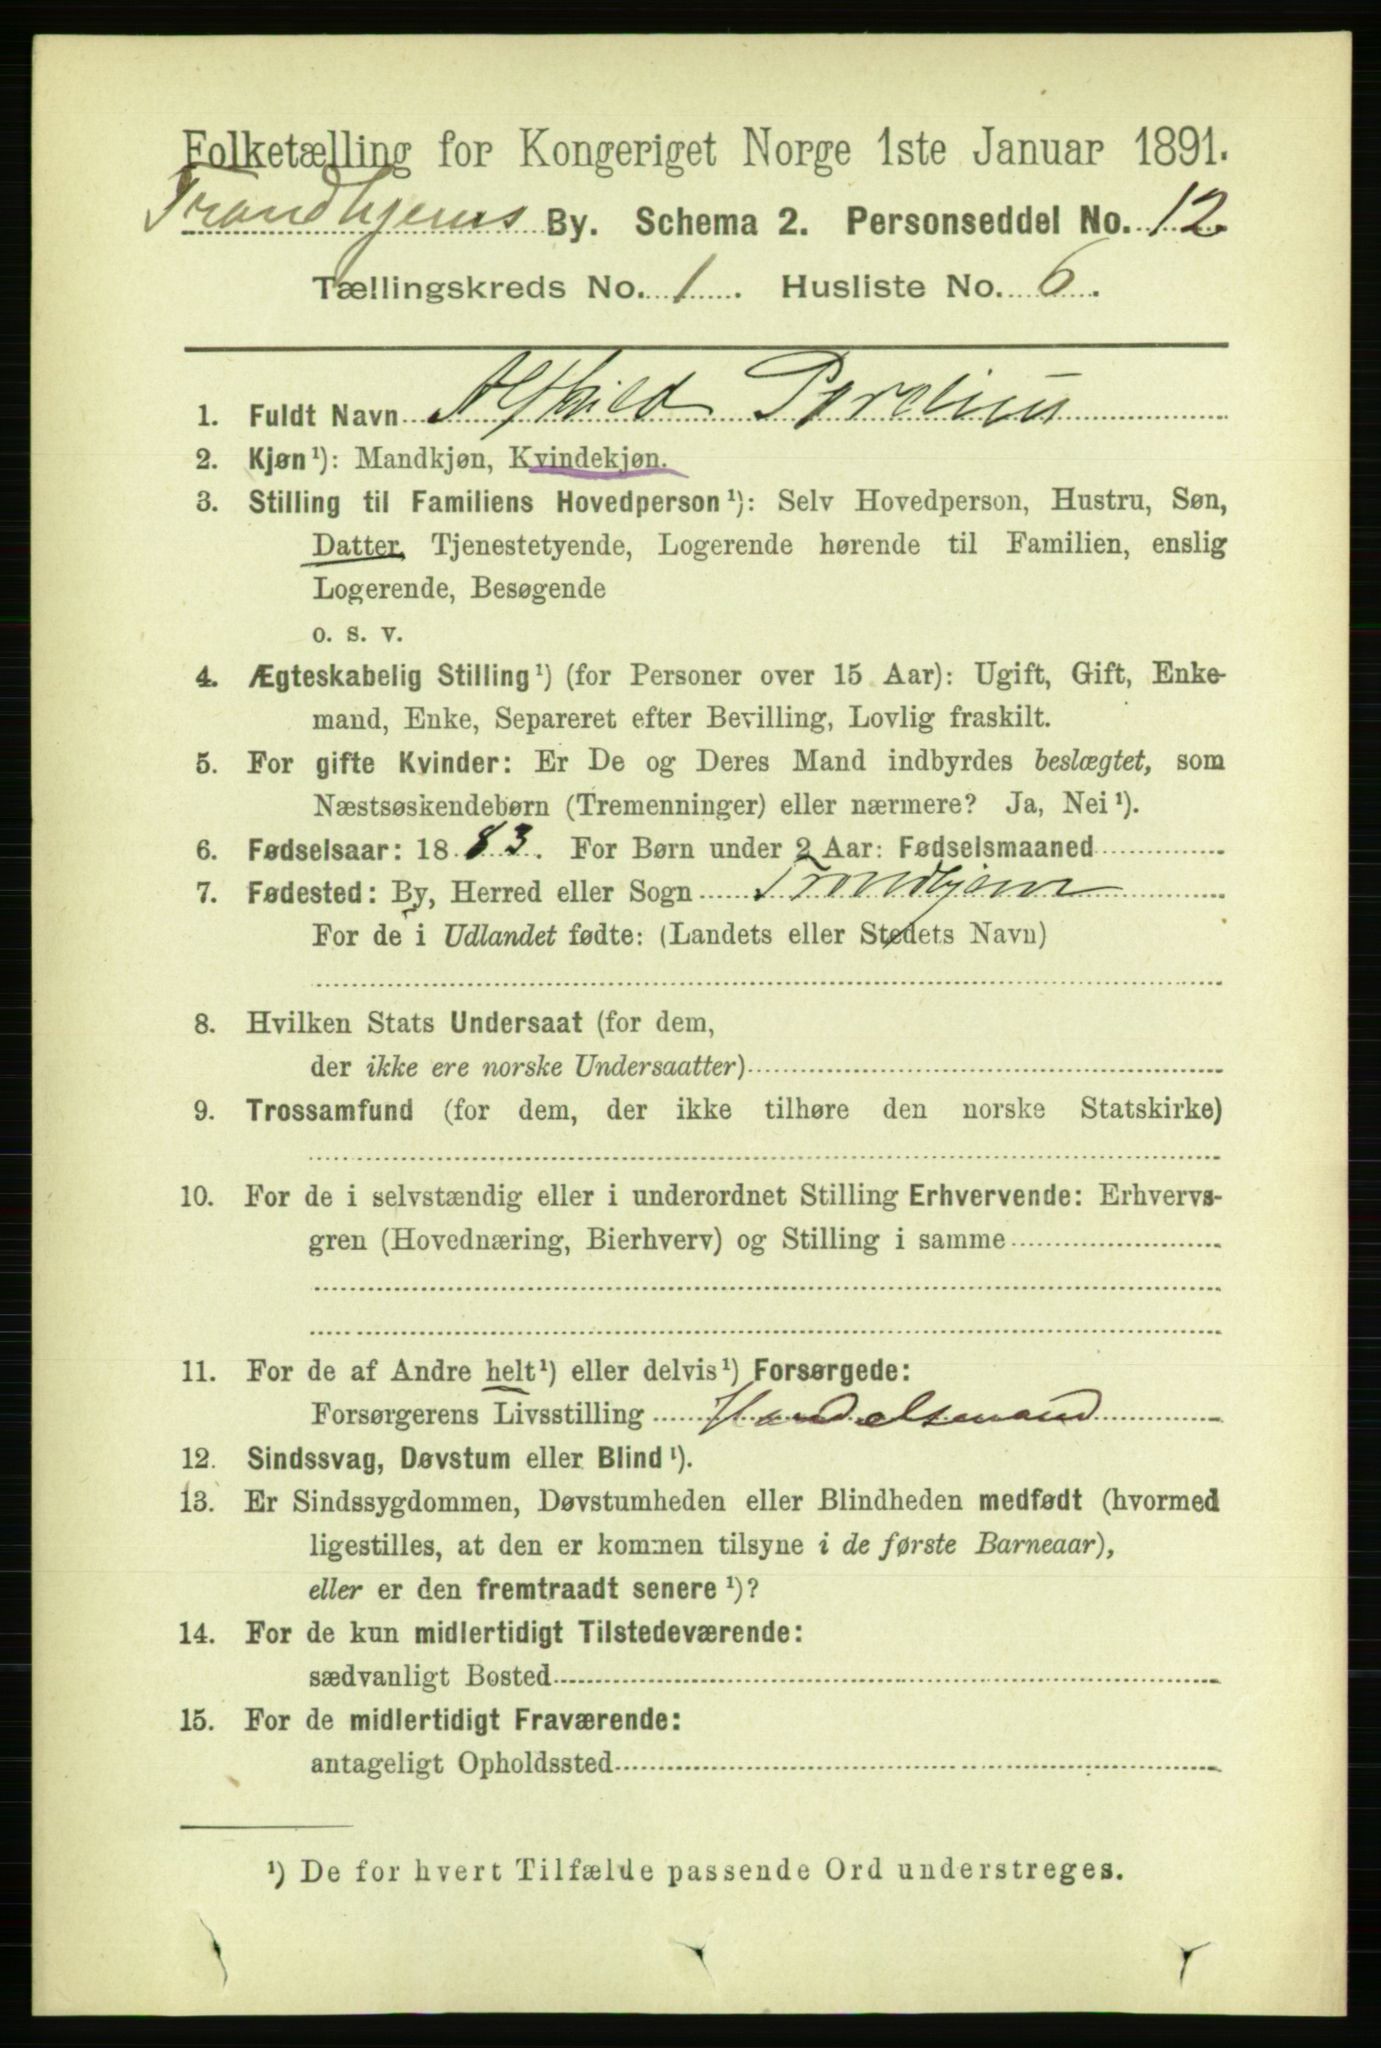 Folketælling for Kongeriget Norge 1ste Januar 1891.
Trondhjems By. Schema 2. Personseddel No. 12
Tællingskreds No. 1. Husliste No. 6.
1. Fuldt Navn Alfhild
2. Kjøn¹): Mandkjøn, Kvindekjøn.
3. Stilling til Familiens Hovedperson¹): Selv Hovedperson, Hustru, Søn,
Datter, Tjenestetyende, Logerende hørende til Familien, enslig
Logerende, Besøgende
o. s. v.
4. Ægteskabelig Stilling¹) (for Personer over 15 Aar): Ugift, Gift, Enke-
mand, Enke, Separeret efter Bevilling, Lovlig fraskilt.
5. For gifte Kvinder: Er De og Deres Mand indbyrdes beslægtet, som
Næstsøskendebørn (Tremenninger) eller nærmere? Ja, Nei¹).
6. Fødselsaar: 1883. For Børn under 2 Aar: Fødselsmaaned
7. Fødested: By, Herred eller Sogn Trondhjem
For de i Udlandet fødte: (Landets eller Stedets Navn)
8. Hvilken Stats Undersaat (for dem,
der ikke ere norske Undersaatter)
9. Trossamfund (for dem, der ikke tilhøre den norske Statskirke)
10. For de i selvstændig eller i underordnet Stilling Erhvervende: Erhvervs-
gren (Hovednæring, Bierhverv) og Stilling i samme
11. For de af Andre helt¹) eller delvis¹) Forsørgede:
Forsørgerens Livsstilling Handelsmand
12. Sindssvag, Døvstum eller Blind¹).
13. Er Sindssygdommen, Døvstumheden eller Blindheden medfødt (hvormed
ligestilles, at den er kommen tilsyne i de første Barneaar),
eller er den fremtraadt senere¹)?
14. For de kun midlertidigt Tilstedeværende:
sædvanligt Bosted
15. For de midlertidigt Fraværende:
antageligt Opholdssted
¹) De for hvert Tilfælde passende Ord understreges.